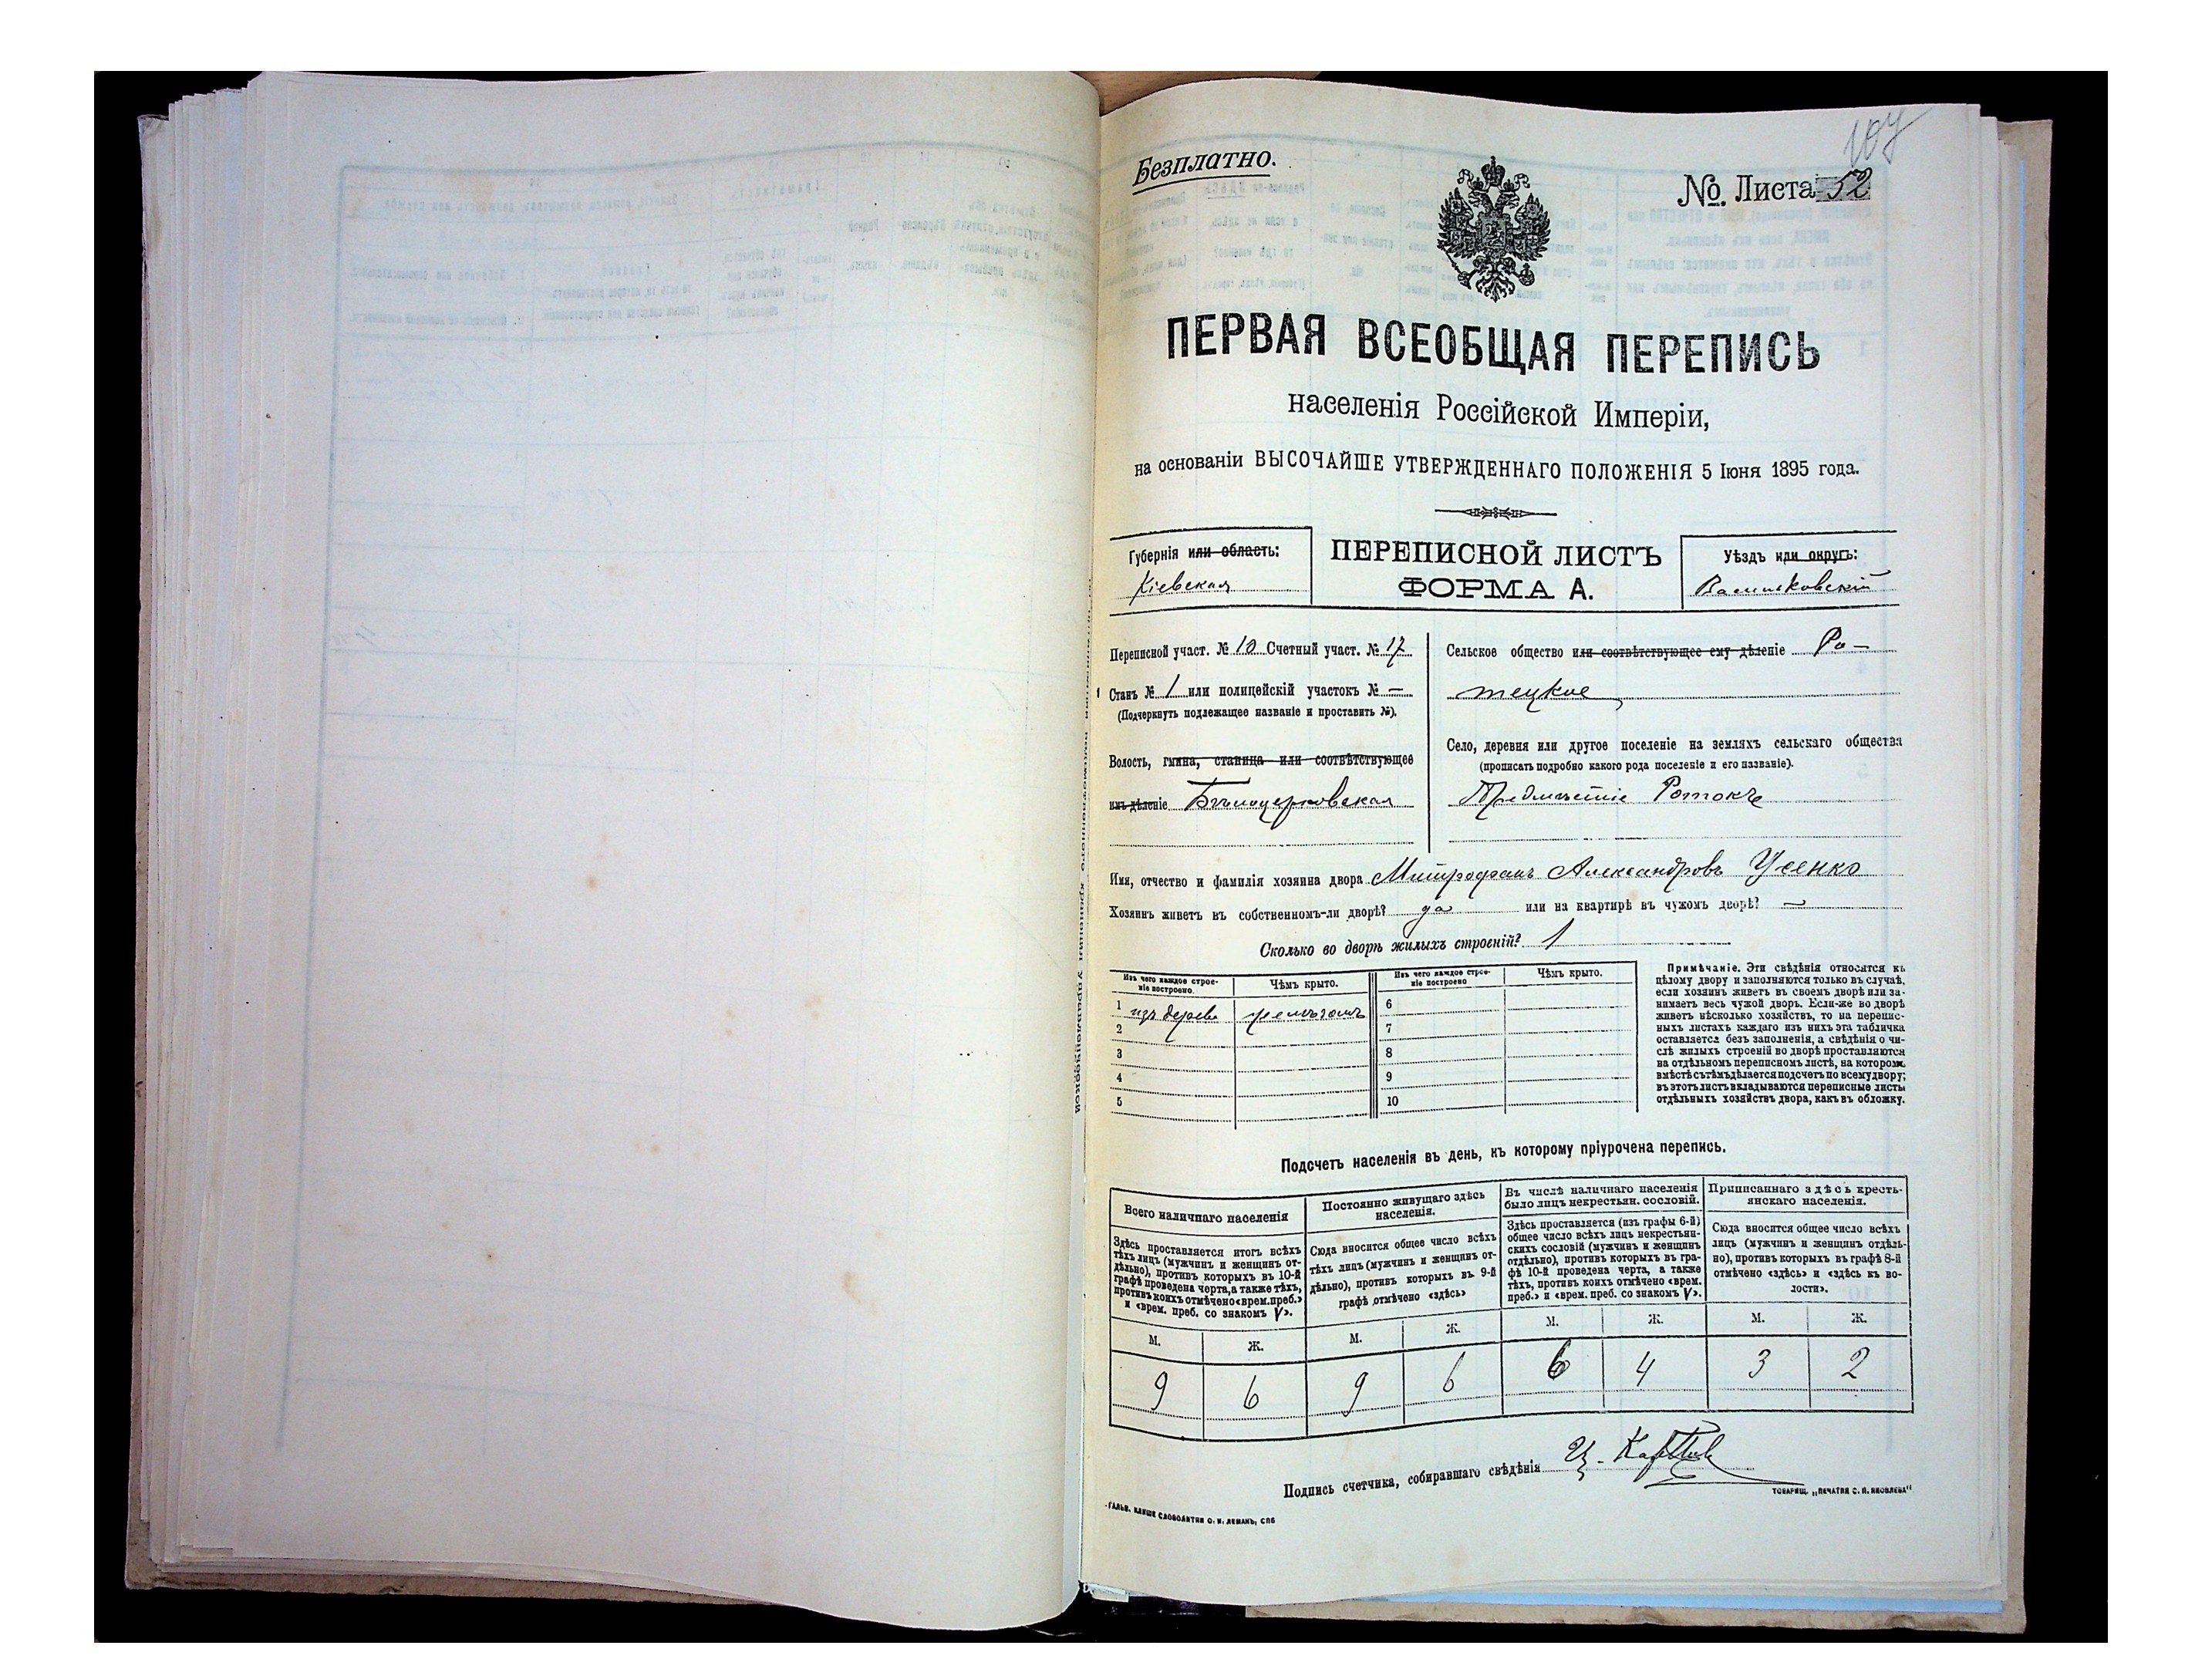 107
Безплатно.
№. Листа 52
ПЕРВАЯ ВСЕОБЩАЯ ПЕРЕПИСЬ
населенія Россійской Имперіи,
на основаніи ВЫСОЧАЙШЕ УТВЕРЖДЕННАГО ПОЛОЖЕНІЯ 5 Іюня 1895 года.
Губернія или область:
Кіевская
ПЕРЕПИСНОЙ ЛИСТЪ
ФОРМА А.
Уѣздъ или округъ:
Васильковскій
Переписной участ. № 10 Счетный участ. № 17
Станъ № 1 или полицейскій участокъ № —
(Подчеркнуть подлежащее названіе и проставить №).
Волость, гмина, станица или соотвѣтствующее
имъ дѣленіе Бѣлоцерковская
Сельское общество или соотвѣтствующее ему дѣленіе Ро-
тецкое
Село, деревня или другое поселеніе на земляхъ сельскаго общества
(прописать подробно какого рода поселеніе и его названіе).
Предмѣстіе Ротокъ
Имя, отчество и фамилія хозяина двора Митрофанъ Александровъ Усенко
Хозяинъ живетъ въ собственномъ-ли дворѣ? да или на квартирѣ въ чужомъ дворѣ? —
Сколько во дворѣ жилыхъ строеній? 1
Изъ чего каждое строе-
ніе построено.
Чѣмъ крыто.
Изъ чего каждое строе-
ніе построено
Чѣмъ крыто.
1 изъ дерева
2
3
4
5
6
7
8
9
10
Примѣчаніе. Эти свѣдѣнія относятся къ
цѣлому двору и заполняются только въ случаѣ,
если хозяинъ живетъ въ своемъ дворѣ или за-
нимаетъ весь чужой дворъ. Если-же во дворѣ
живетъ нѣсколько хозяйствъ, то на перепис-
ныхъ листахъ каждаго изъ нихъ эта табличка
оставляется безъ заполненія, а свѣдѣнія о чи-
слѣ жилыхъ строеній во дворѣ проставляются
на отдѣльномъ переписномъ листѣ, на которомъ
вмѣстѣ съ тѣмъ дѣлается подсчетъ по всему двору;
въ этотъ листъ вкладываются переписные листы
отдѣльныхъ хозяйствъ двора, какъ въ обложку.
Подсчетъ населенія въ день, къ которому пріурочена перепись.
Всего наличнаго населенія
Здѣсь проставляется итогъ всѣхъ
тѣхъ лицъ (мужчинъ и женщинъ от-
дѣльно), противъ которыхъ въ 10-й
графѣ проведена черта, а также тѣхъ,
противъ коихъ отмѣчено «врем. преб.»
и «врем. преб. со знакомъ V».
Постоянно живущаго здѣсь
населенія.
Сюда вносится общее число всѣхъ
тѣхъ лицъ (мужчинъ и женщинъ от-
дѣльно), противъ которыхъ въ 9-й
графѣ отмѣчено «здѣсь»
Въ числѣ наличнаго населенія
было лицъ некрестьян. сословій.
Здѣсь проставляется (изъ графы 6-й)
общее число всѣхъ лицъ некрестьян-
скихъ сословій (мужчинъ и женщинъ
отдѣльно), противъ которыхъ въ гра-
фѣ 10-й проведена черта, а также
тѣхъ, противъ коихъ отмѣчено «врем.
преб.» и «врем. преб. со знакомъ V».
Приписаннаго здѣсь кресть-
янскаго населенія.
Сюда вносится общее число всѣхъ
лицъ (мужчинъ и женщинъ отдѣль-
но), противъ которыхъ въ графѣ 8-й
отмѣчено «здѣсь» и «здѣсь къ во-
лости».
М. Ж. М. Ж. М. Ж. М. Ж.
9 6 9 6 6 4 3 2
Подпись счетчика, собиравшаго свѣдѣнія
ГАЛЬВ. КЛИШЕ СЛОВОЛИТНИ О. И. ЛЕМАНЪ, СПБ
ТОВАРИЩ. „ПЕЧАТНЯ С. П. ЯКОВЛЕВА"